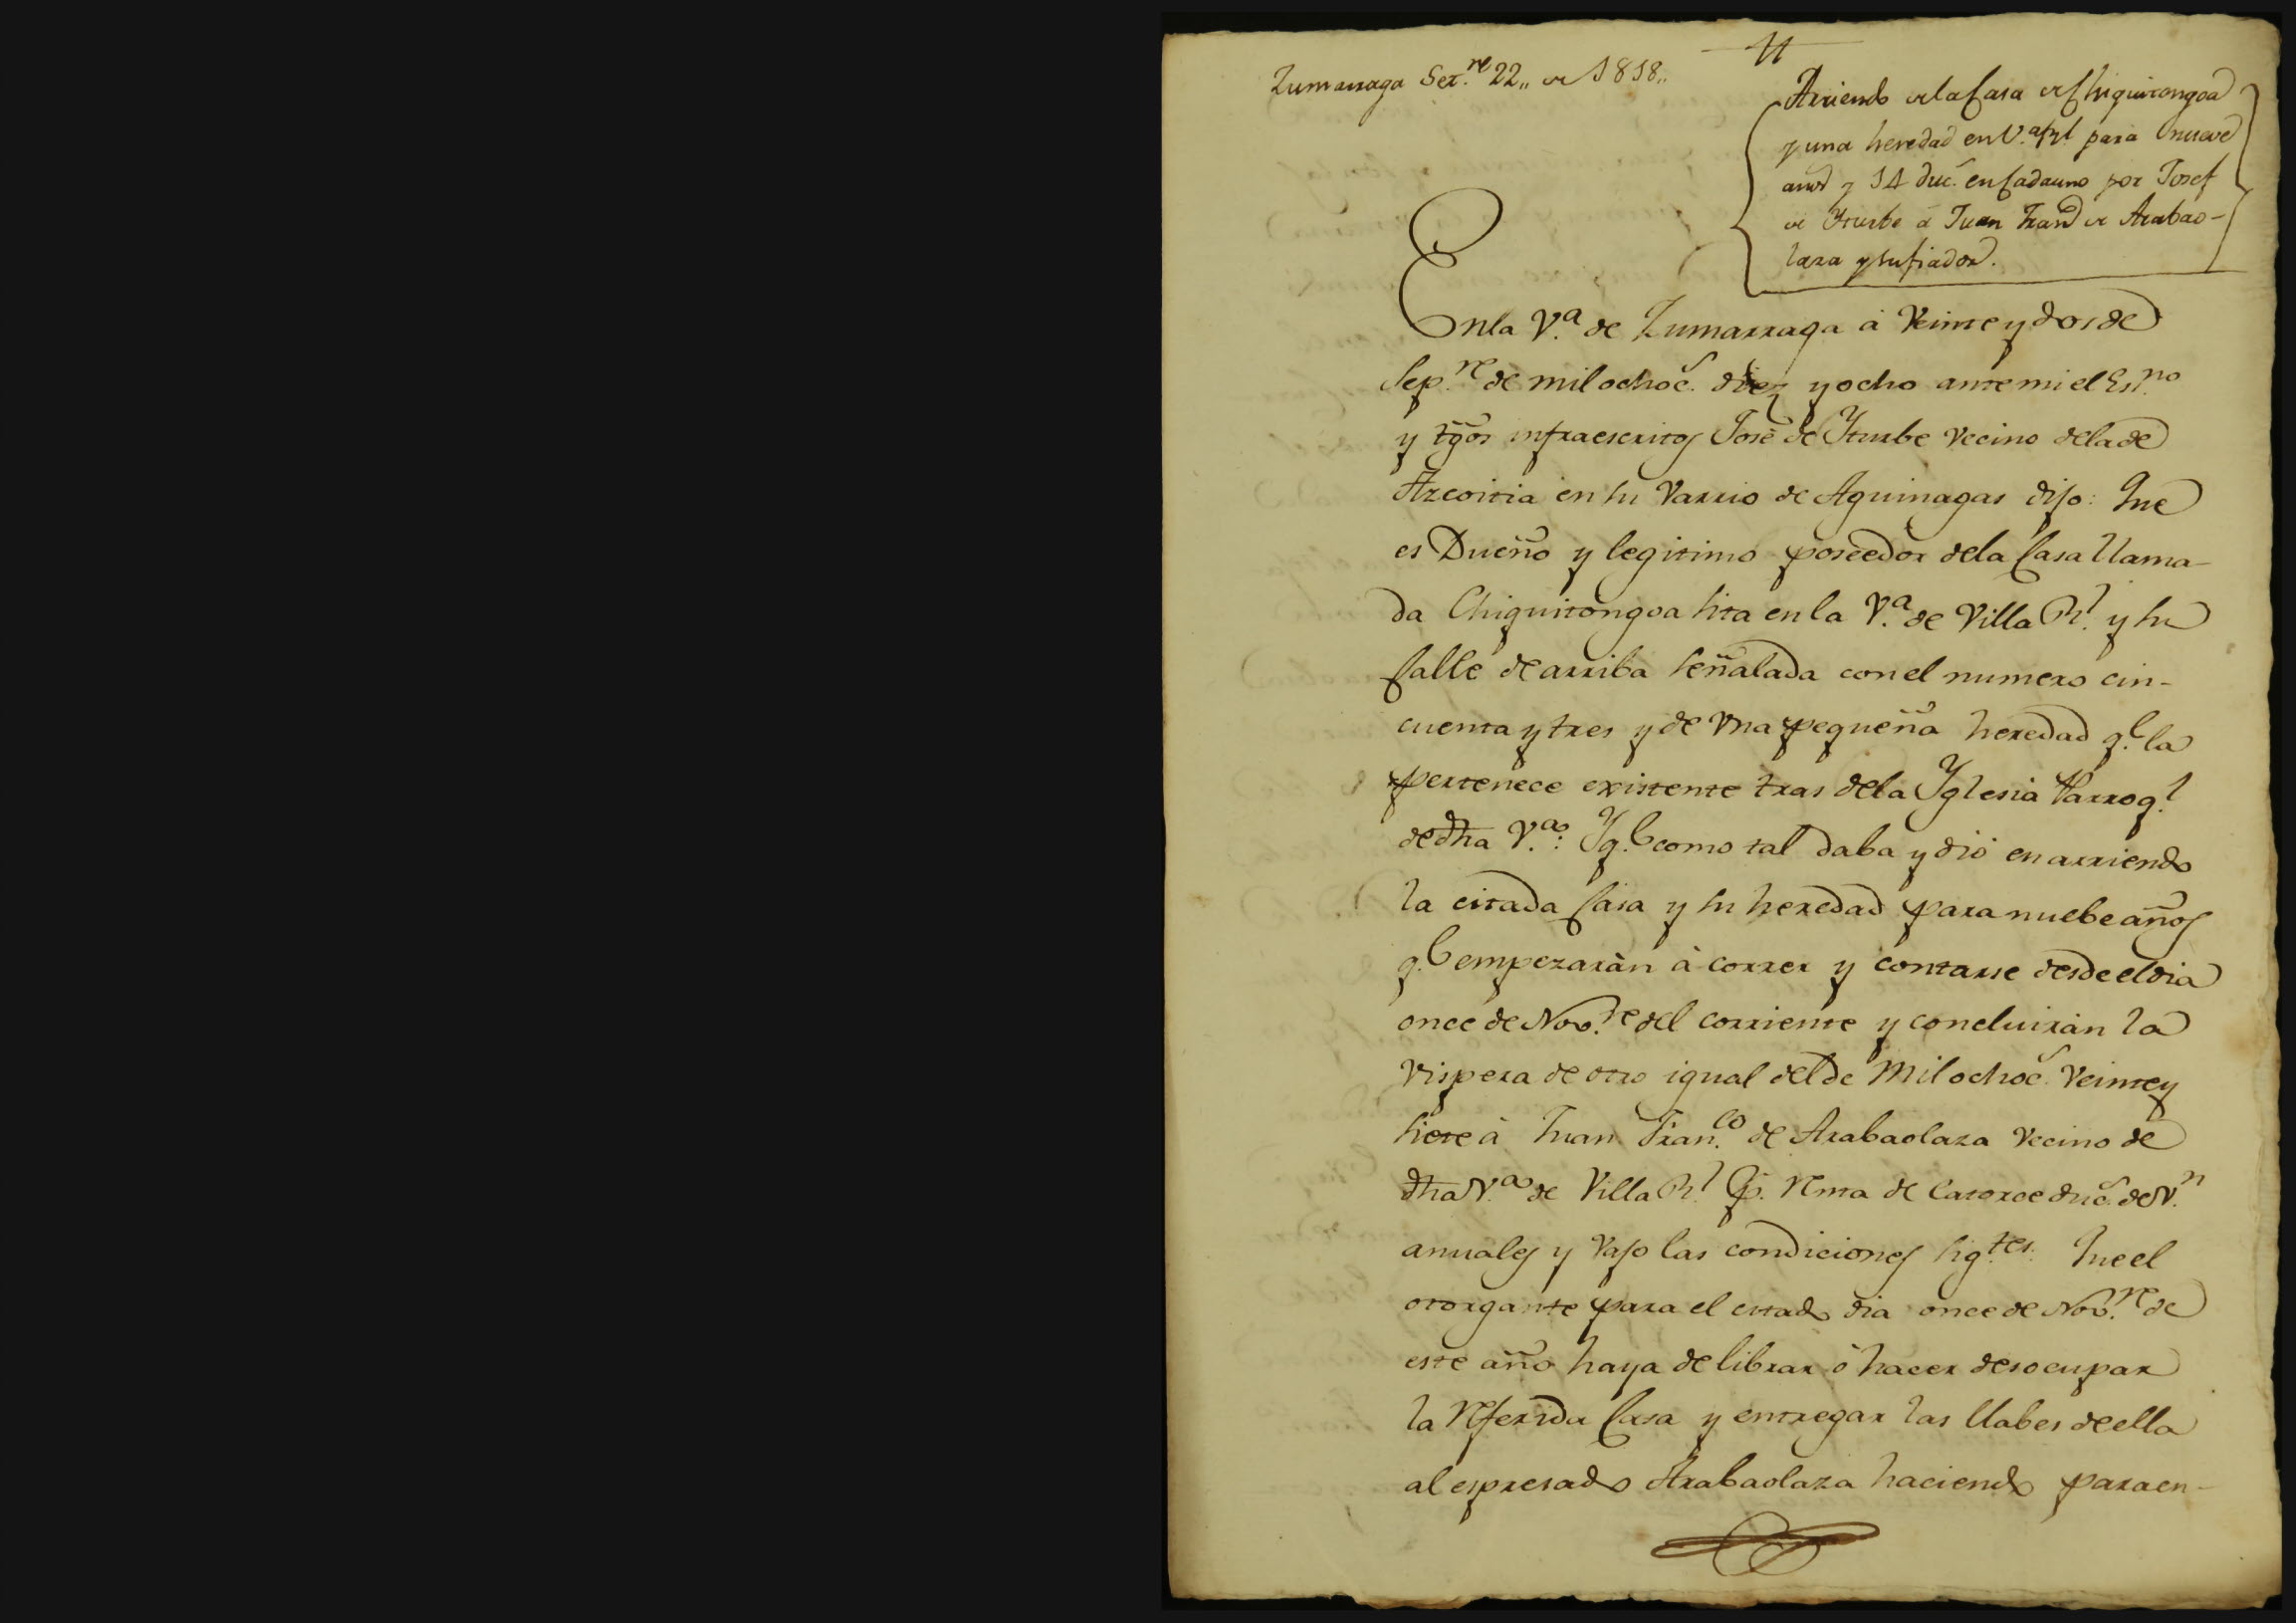 Zumarraga Set.re 22,, de 1818,,
Arriendo de la Casa de Chiquitongoa
y una heredad en V.a Rl. para nueve
años y 14 duc.s en cada uno por Josef
de Yturbe á Juan Fran.co de Arabao-
laza y su fiador.
En la V.a de Zumarraga á Veinte y dos de
Sep.re de mil ochoc.s diez y ocho ante mi el Es.no
y tgõs infraescritos José de Yturbe vecino de la de
Azcoitia en su Varrio de Aguinagas dijo: Que
es Dueño y legitimo poseedor de la Casa llama-
da Chiquitongoa sita en la V.a de Villa Rl. y su
Calle de arriba señalada con el numero cin-
cuenta y tres y de Vna pequeña heredad q.e la
pertenece existente tras de la Yglesia Parroq.l
de dha V.a: Y q.e como tal daba y dió en arriendo
la citada Casa y su heredad para nuebe años
q.e empezarán á correr y contarse desde el dia
once de Nov.re del corriente y concluirán la
Vispera de otro igual del de Mil ochoc.s Veinte y
siete á Juan Fran.co de Arabaolaza Vecino de
dha V.a de Villa Rl. p.r renta de Catorce duc.s de V.n
anuales y Vajo las condiciones sig.tes. Que el
otorgante para el citado dia once de Nov.re de
este año haya de librar ó hacer desocupar
la referida Casa y entregar las llabes de ella
al espresado Arabaolaza haciendo para en-